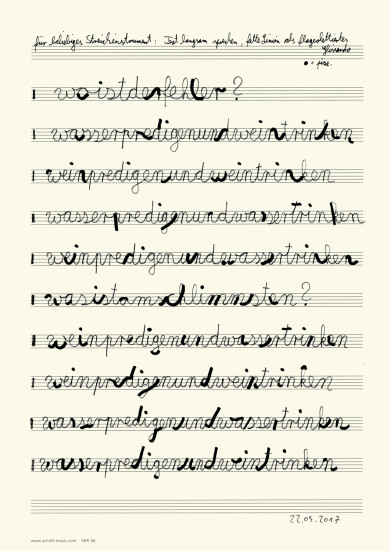 für beliebiges Streichinstrument: Text langsam spielen, fette Linien als flageolettartiges
Glissando
• = pizz.
woistderfehler?
wasserpredigenundweintrinken
weinpredigenundweintrinken
wasserpredigenundwassertrinken
weinpredigenundwassertrinken
wasistamschlimmsten?
weinpredigenundwassertrinken
weinpredigenundweintrinken
wasserpredigenundwassertrinken
wasserpredigenundweintrinken
22.05.2017
www.schott-music.com